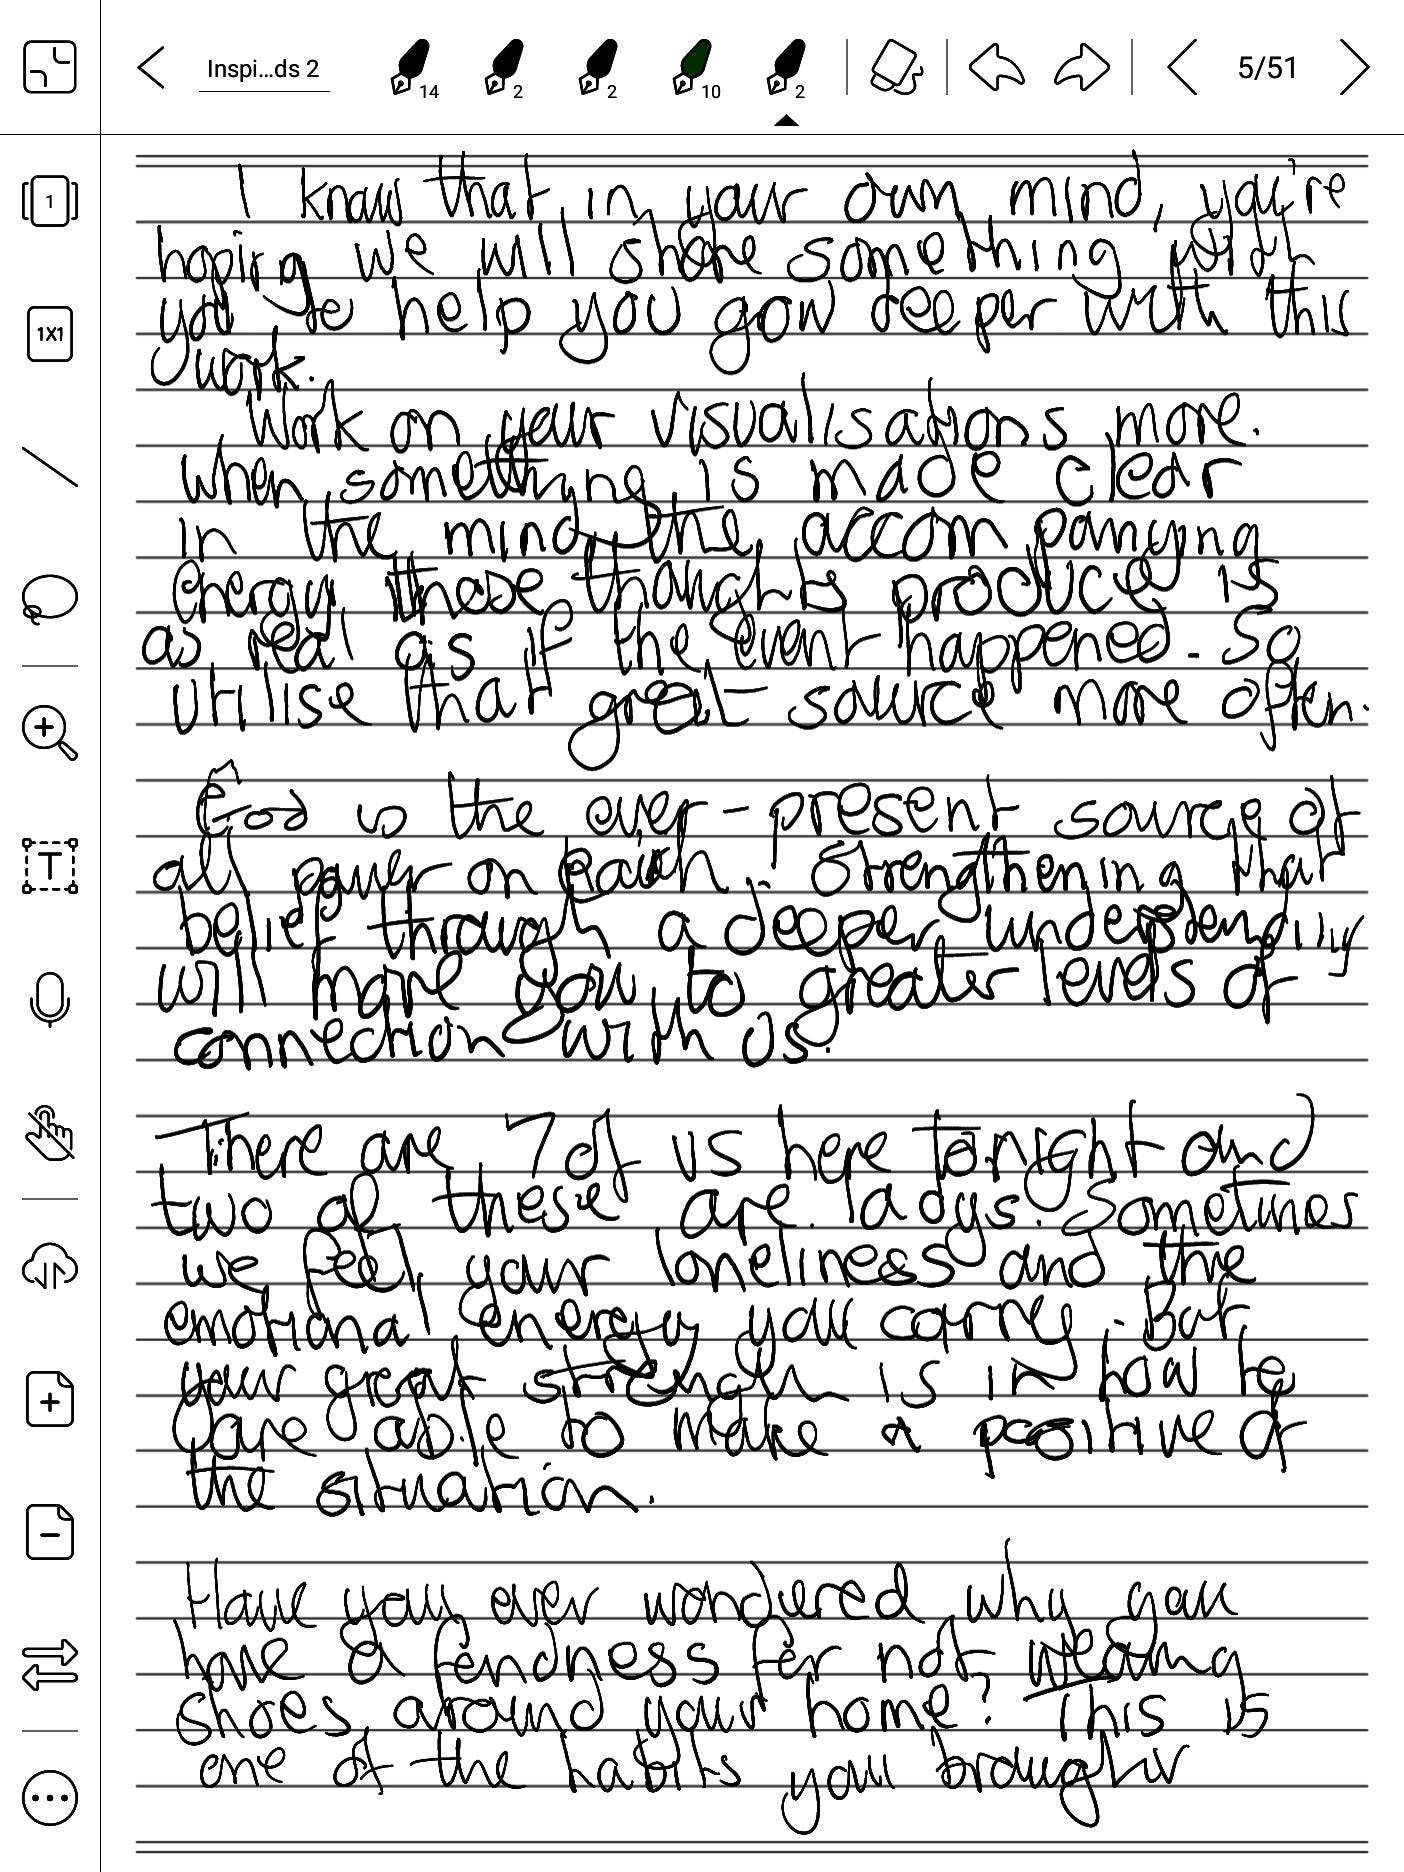 Inspi...ds 2
14
2
2
10
2
5/51
1
1X1
T
I know that in your own mind, you're
hoping we will share something with
you to help you grow deeper with this
work.
Work on your visualisations more.
When something is made clear
in the mind, the accompanying
energy those thoughts produce is
as real as if the event happened. So
utilise that great source more often.
God is the ever-present source of
all power on Earth. Strengthening that
belief through a deeper understanding
will move you to greater levels of
connection with us.
There are 7 of us here tonight and
two of these are ladys. Sometimes
we feel your loneliness and the
emotional energy you carry. But
your great strength is in how
are able to make a positive of
the situation.
Have you ever wondered why you
have a fondness for not wearing
shoes around your home? This is
one of the habits you brought